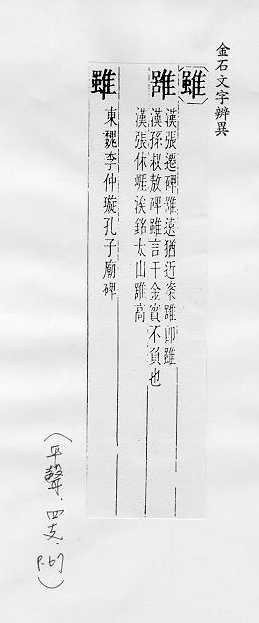 金石文字辨異
雖
漢張遷碑雖遠猶近案雖即雖
雖
漢孫叔敖碑雖言千金實不負也
漢張休崖涘銘太山雖高
雖
東魏李仲璇孔子廟碑
(平聲.四支.P.67)